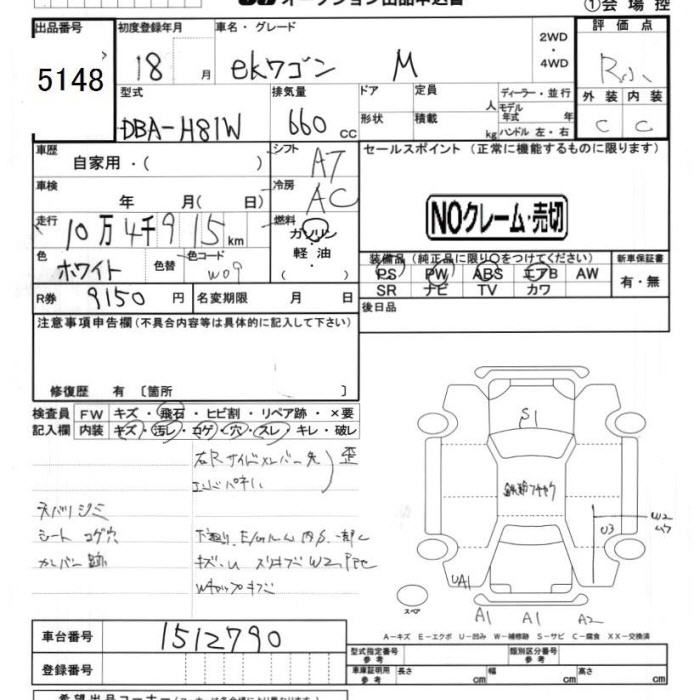 オークション出品申込書
①会場控
出品番号
初度登録年月
車名・グレード
2WD
・
4WD
評価点
5148
18 月
ekワゴン M
R
型式
排気量
ドア
定員
ディーラー・並行
外装 内装
DBA-H81W
660 cc
人
モデル年式 年
C C
形状
積載
kg
ハンドル 左・右
車歴
自家用・( )
シフト
AT
セールスポイント (正常に機能するものに限ります)
車検
年 月( 日)
冷房
AC
NOクレーム・売切
走行
10万4千915km
燃料
ガソリン
・
軽油
・
( )
色
ホワイト
色替
色コード
W09
装備品 (純正品に限り○をつけてください)
新車保証書
PS PW ABS エアB AW
有・無
SR ナビ TV カワ
R券
9150円
名変期限 月 日
後日品
注意事項申告欄(不具合内容等は具体的に記入して下さい)
修復歴 有 〔箇所 〕
検査員 FW キズ・飛石・ヒビ割・リペア跡・×要
記入欄 内装 キズ・汚レ・コゲ・穴・スレ・キレ・破レ
右Rサイドメンバー先
歪
天バリシミ
シート コゲ穴
カバー跡
S1
鉄粉
W2
U3
UA1
A1
A1
A2
スペア
A-キズ E-エクボ U-凹み W-補修跡 S-サビ C-腐食 XX-交換済
車台番号
1512790
型式指定番号
参考
類別区分番号
参考
登録番号
車庫証明用
参考
長さ cm
幅 cm
高さ cm
希望出品コーナー